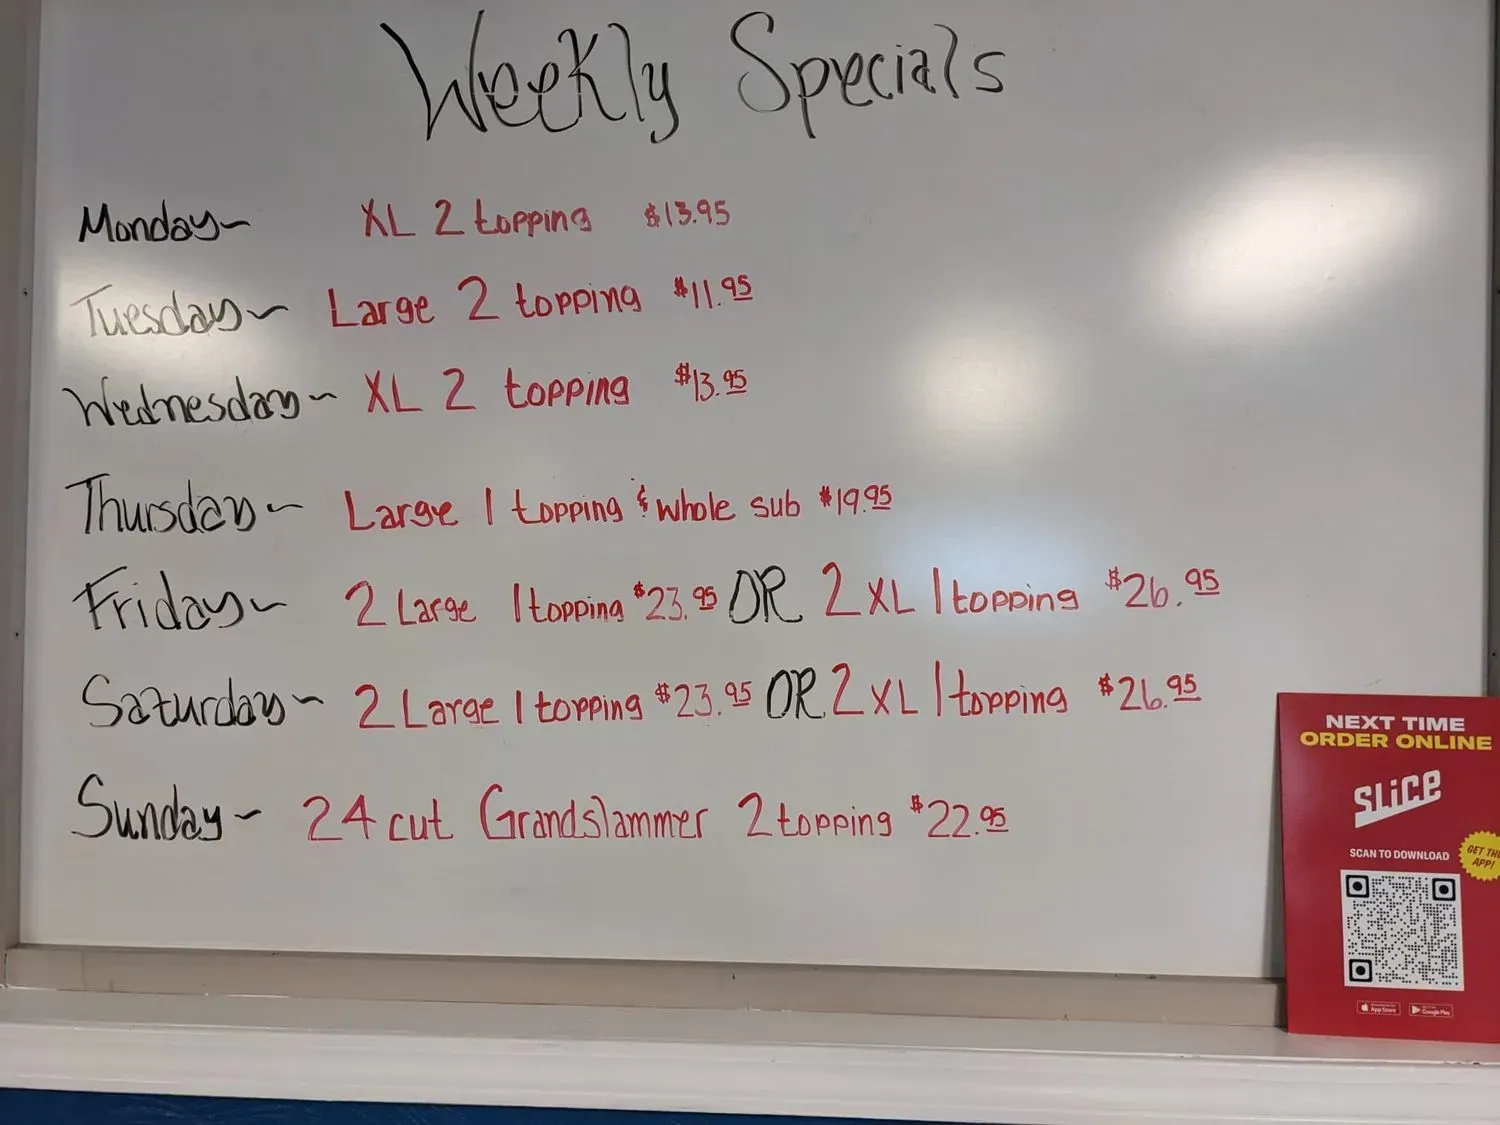 Weekly Specials
Monday~ XL 2 topping $13.95
Tuesday~ Large 2 topping $11.95
Wednesday~ XL 2 topping $13.95
Thursday~ Large 1 topping & whole sub $19.95
Friday~ 2 Large 1 topping $23.95 OR 2 XL 1 topping $26.95
Saturday~ 2 Large 1 topping $23.95 OR 2 XL 1 topping $26.95
Sunday~ 24 cut Grandslammer 2 topping $22.95
NEXT TIME
ORDER ONLINE
SLiCE
SCAN TO DOWNLOAD
GET THE
APP!
App Store
Google Play